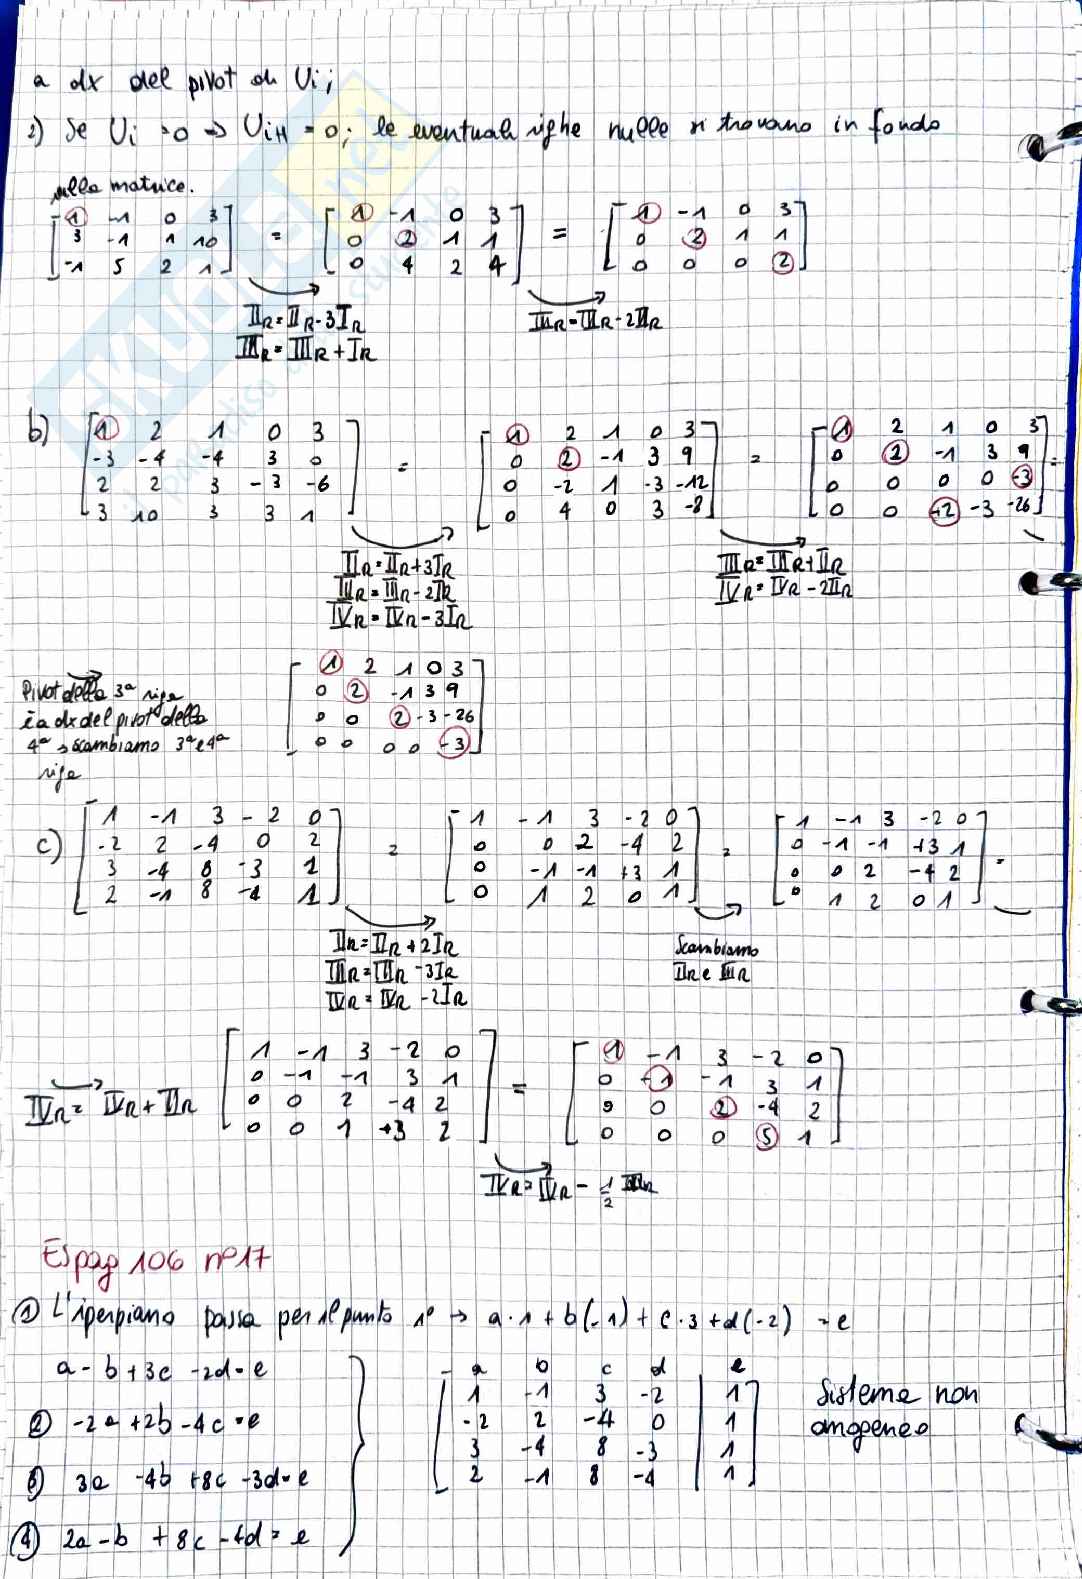 a dx del pivot di Ui;
2) Se Ui = 0 → Ui+1 = 0; le eventuali righe nulle si trovano in fondo
alla matrice.
[ 1 -1 0 3 ] = [ 1 -1 0 3 ] = [ 1 -1 0 3 ]
[ 3 -1 1 10 ] [ 0 2 1 1 ] [ 0 2 1 1 ]
[ -1 5 2 1 ] [ 0 4 2 4 ] [ 0 0 0 2 ]
IIR = IIR - 3IR
IIIR = IIIR + IR
IIIR = IIIR - 2IIR
b) [ 1 2 1 0 3 ] = [ 1 2 1 0 3 ] = [ 1 2 1 0 3 ] =
[ -3 -4 -4 3 0 ] [ 0 2 -1 3 9 ] [ 0 2 -1 3 9 ]
[ 2 2 3 -3 -6 ] [ 0 -2 1 -3 -12 ] [ 0 0 0 0 -3 ]
[ 3 10 3 3 1 ] [ 0 4 0 3 -8 ] [ 0 0 +2 -3 -26 ]
IIR = IIR + 3IR
IIIR = IIIR - 2IR
IVR = IVR - 3IR
IIIR = IIIR + IIR
IVR = IVR - 2IIR
Pivot della 3ª riga
è a dx del pivot della
4ª → scambiamo 3ª e 4ª
riga
[ 1 2 1 0 3 ]
[ 0 2 -1 3 9 ]
[ 0 0 2 -3 -26 ]
[ 0 0 0 0 -3 ]
c) [ 1 -1 3 -2 0 ] = [ 1 -1 3 -2 0 ] = [ 1 -1 3 -2 0 ] =
[ -2 2 -4 0 2 ] [ 0 0 2 -4 2 ] [ 0 -1 -1 +3 1 ]
[ 3 -4 8 -3 1 ] [ 0 -1 -1 +3 1 ] [ 0 0 2 -4 2 ]
[ 2 -1 8 -4 1 ] [ 0 1 2 0 1 ] [ 0 1 2 0 1 ]
IIR = IIR + 2IR
IIIR = IIIR - 3IR
IVR = IVR - 2IR
Scambiamo
IIR e IIIR
IVR = IVR + IIR
[ 1 -1 3 -2 0 ] = [ 1 -1 3 -2 0 ]
[ 0 -1 -1 3 1 ] [ 0 -1 -1 3 1 ]
[ 0 0 2 -4 2 ] [ 0 0 2 -4 2 ]
[ 0 0 1 +3 2 ] [ 0 0 0 5 1 ]
IVR = IVR - 1/2 IIIR
Es pag 106 n°17
① L'iperpiano passa per il punto 1° → a·1 + b(-1) + c·3 + d(-2) = e
a - b + 3c - 2d = e
② -2a + 2b - 4c = e
③ 3a - 4b + 8c - 3d = e
④ 2a - b + 8c - 4d = e
a b c d e
[ 1 -1 3 -2 | 1 ]
[ -2 2 -4 0 | 1 ]
[ 3 -4 8 -3 | 1 ]
[ 2 -1 8 -4 | 1 ]
Sistema non
omogeneo